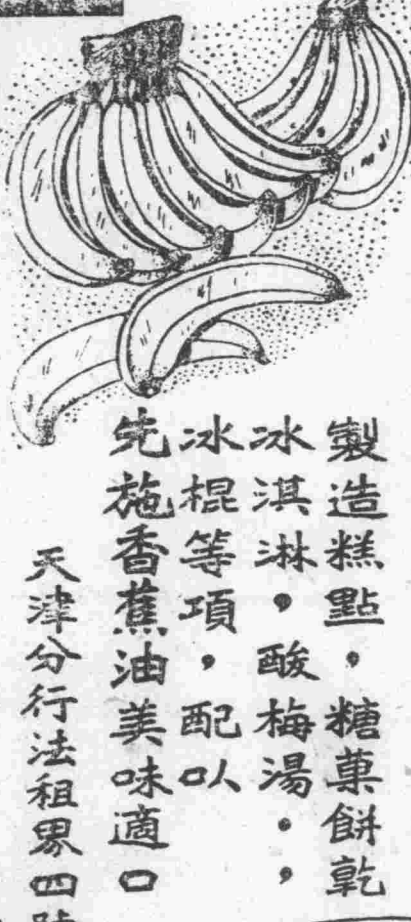 製造糕點，糖菓餅乾
冰淇淋，酸梅湯．，
冰棍等項，配以
先施香蕉油美味適口
天津分行法租界四號